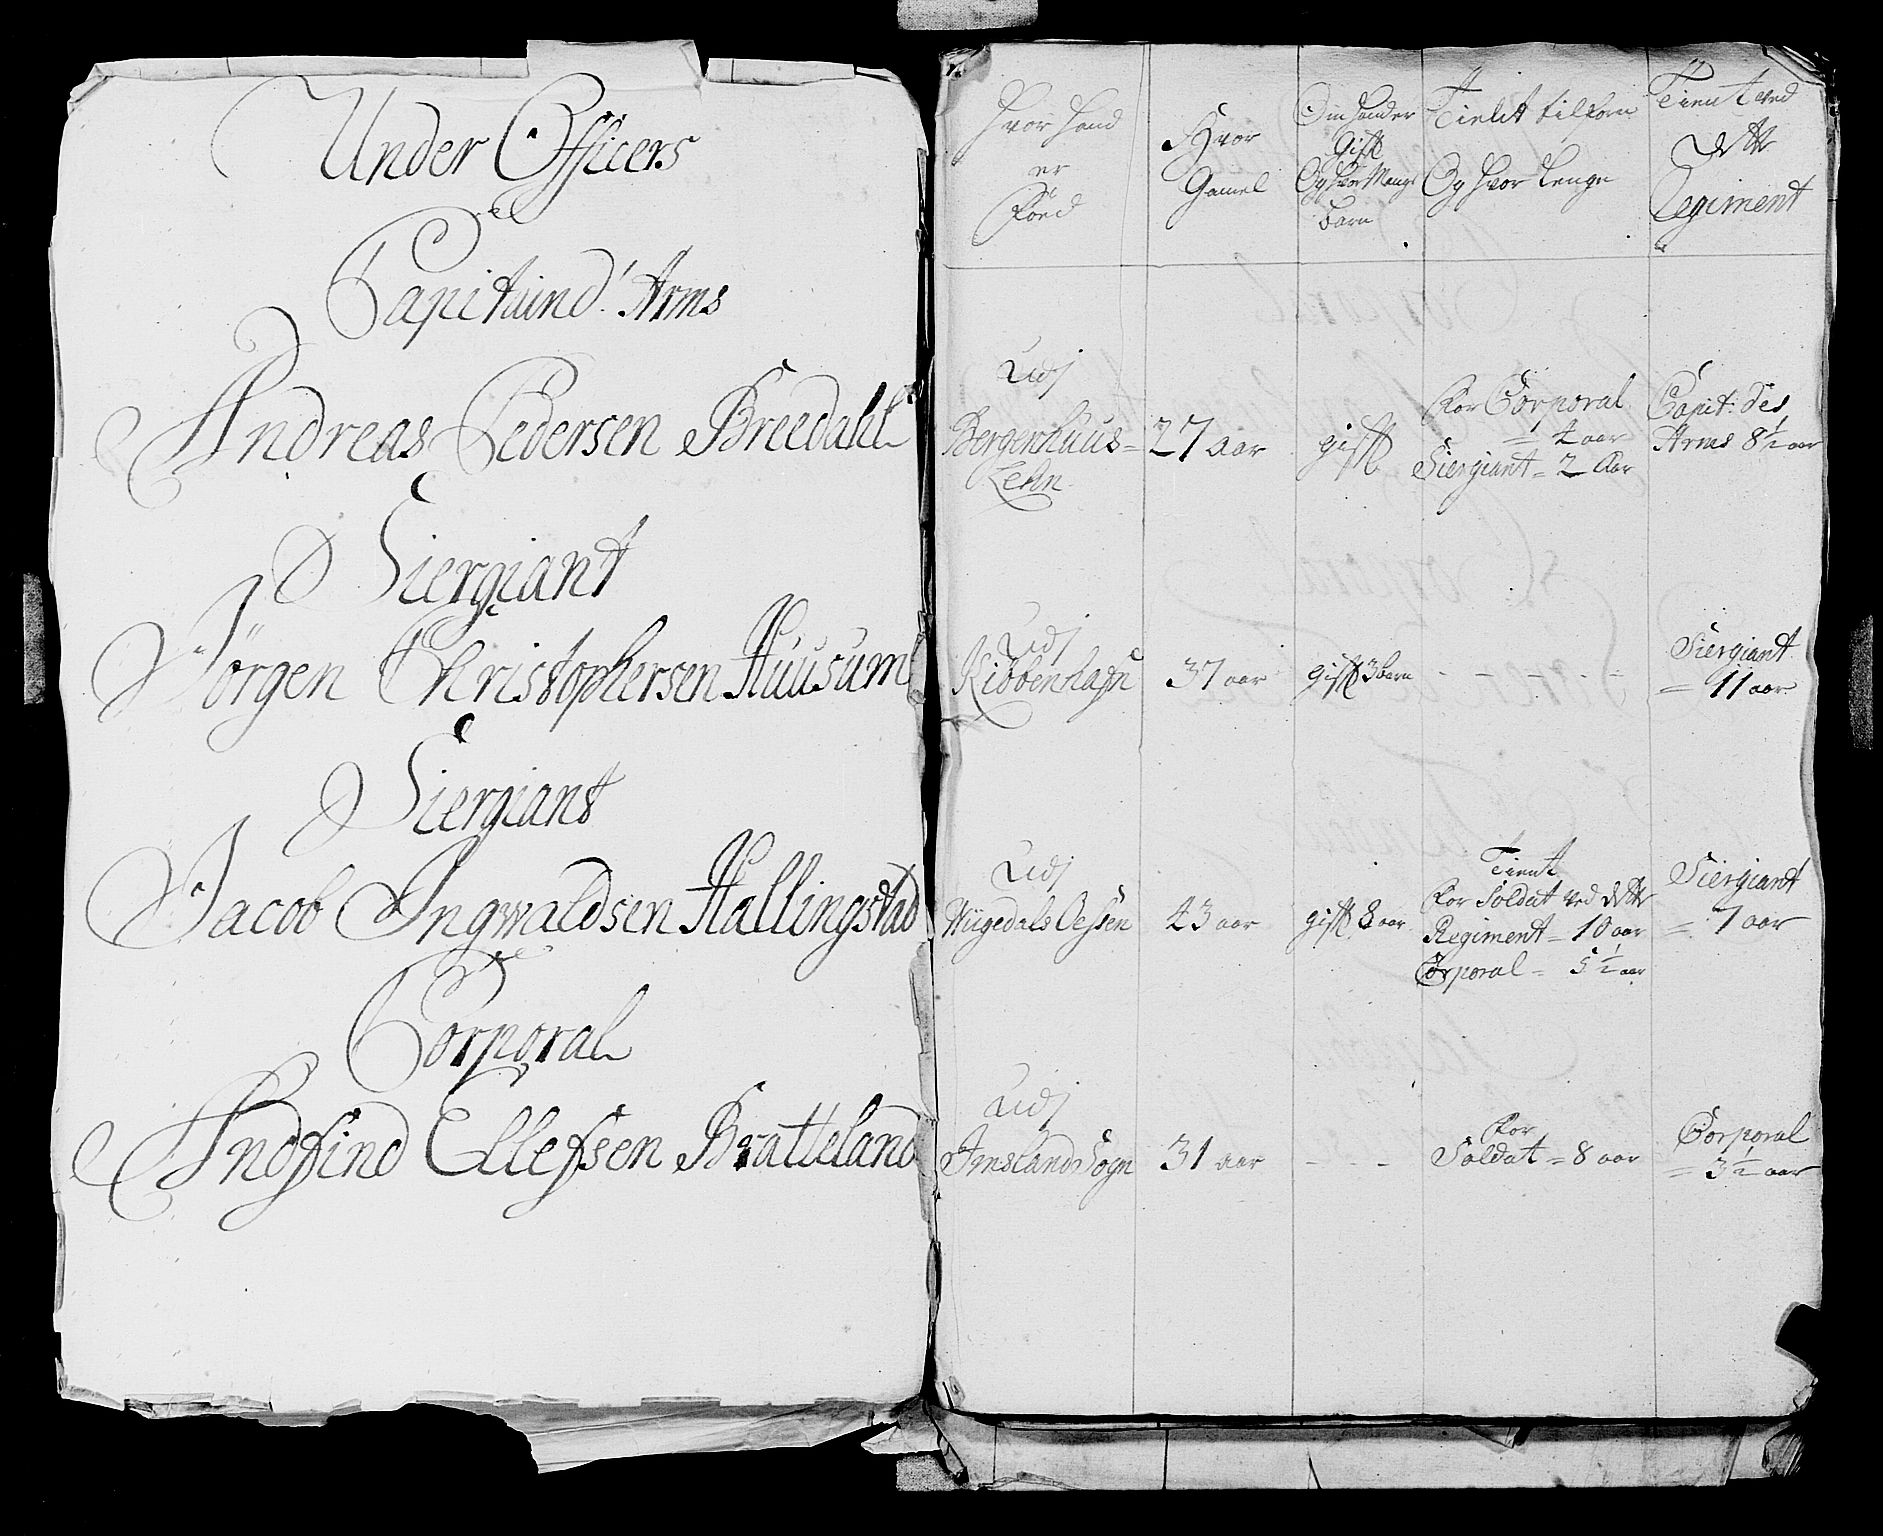 Under Officers
Capitaind' Arms
Andreas Pedersen Breedahl
Siergiant
Jörgen Christophersen Huusum
Siergiant
Jacob Ingwaldsen Hallingstad
Corporal
Andfind Ellefsen Bratteland
Hvor hand
er
Föed
Hvor
Gamel
Om hand er
Gift
Og hvor Mange
barn
Tient tilforn
Og hvor Lenge
Tient ved
dette
Regiment
Udj
Bergenhuus=
Lehn
27 aar
gift
For Corporal
= 4 aar
Siergiant = 2 Aar
Capit: des
Arms 8½ aar
Udj
Kibbenhafn
37 aar
gift 3 barn
- - - - -
Siergiant
= 11 aar
Udj
Wiigedals Oessen
43 aar
gift 8 aar
Tient
For Soldat ved dette
Regiment = 10 aar
Corporal = 5½ aar
Siergiant
= 7 aar
Udj
Imsland Sogn
31 aar
- - -
For
Soldat = 8 aar
Corporal
= 3½ aar